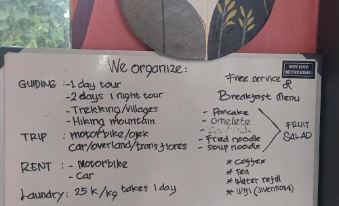 We organize:
GUIDING : - 1 day tour
- 2 days 1 night tour
- Trekking/villages
- Hiking mountain
TRIP : motorbike/ojek
car/overland/trans flores
RENT : - Motorbike
- Car
Laundry : 25 k/kg takes 1 day
Free service &
Breakfast Menu
- Pancake
- Omelete
- Fried noodle
- soup noodle
FRUIT
SALAD
* coffee
* Tea
* water refill
* wifi